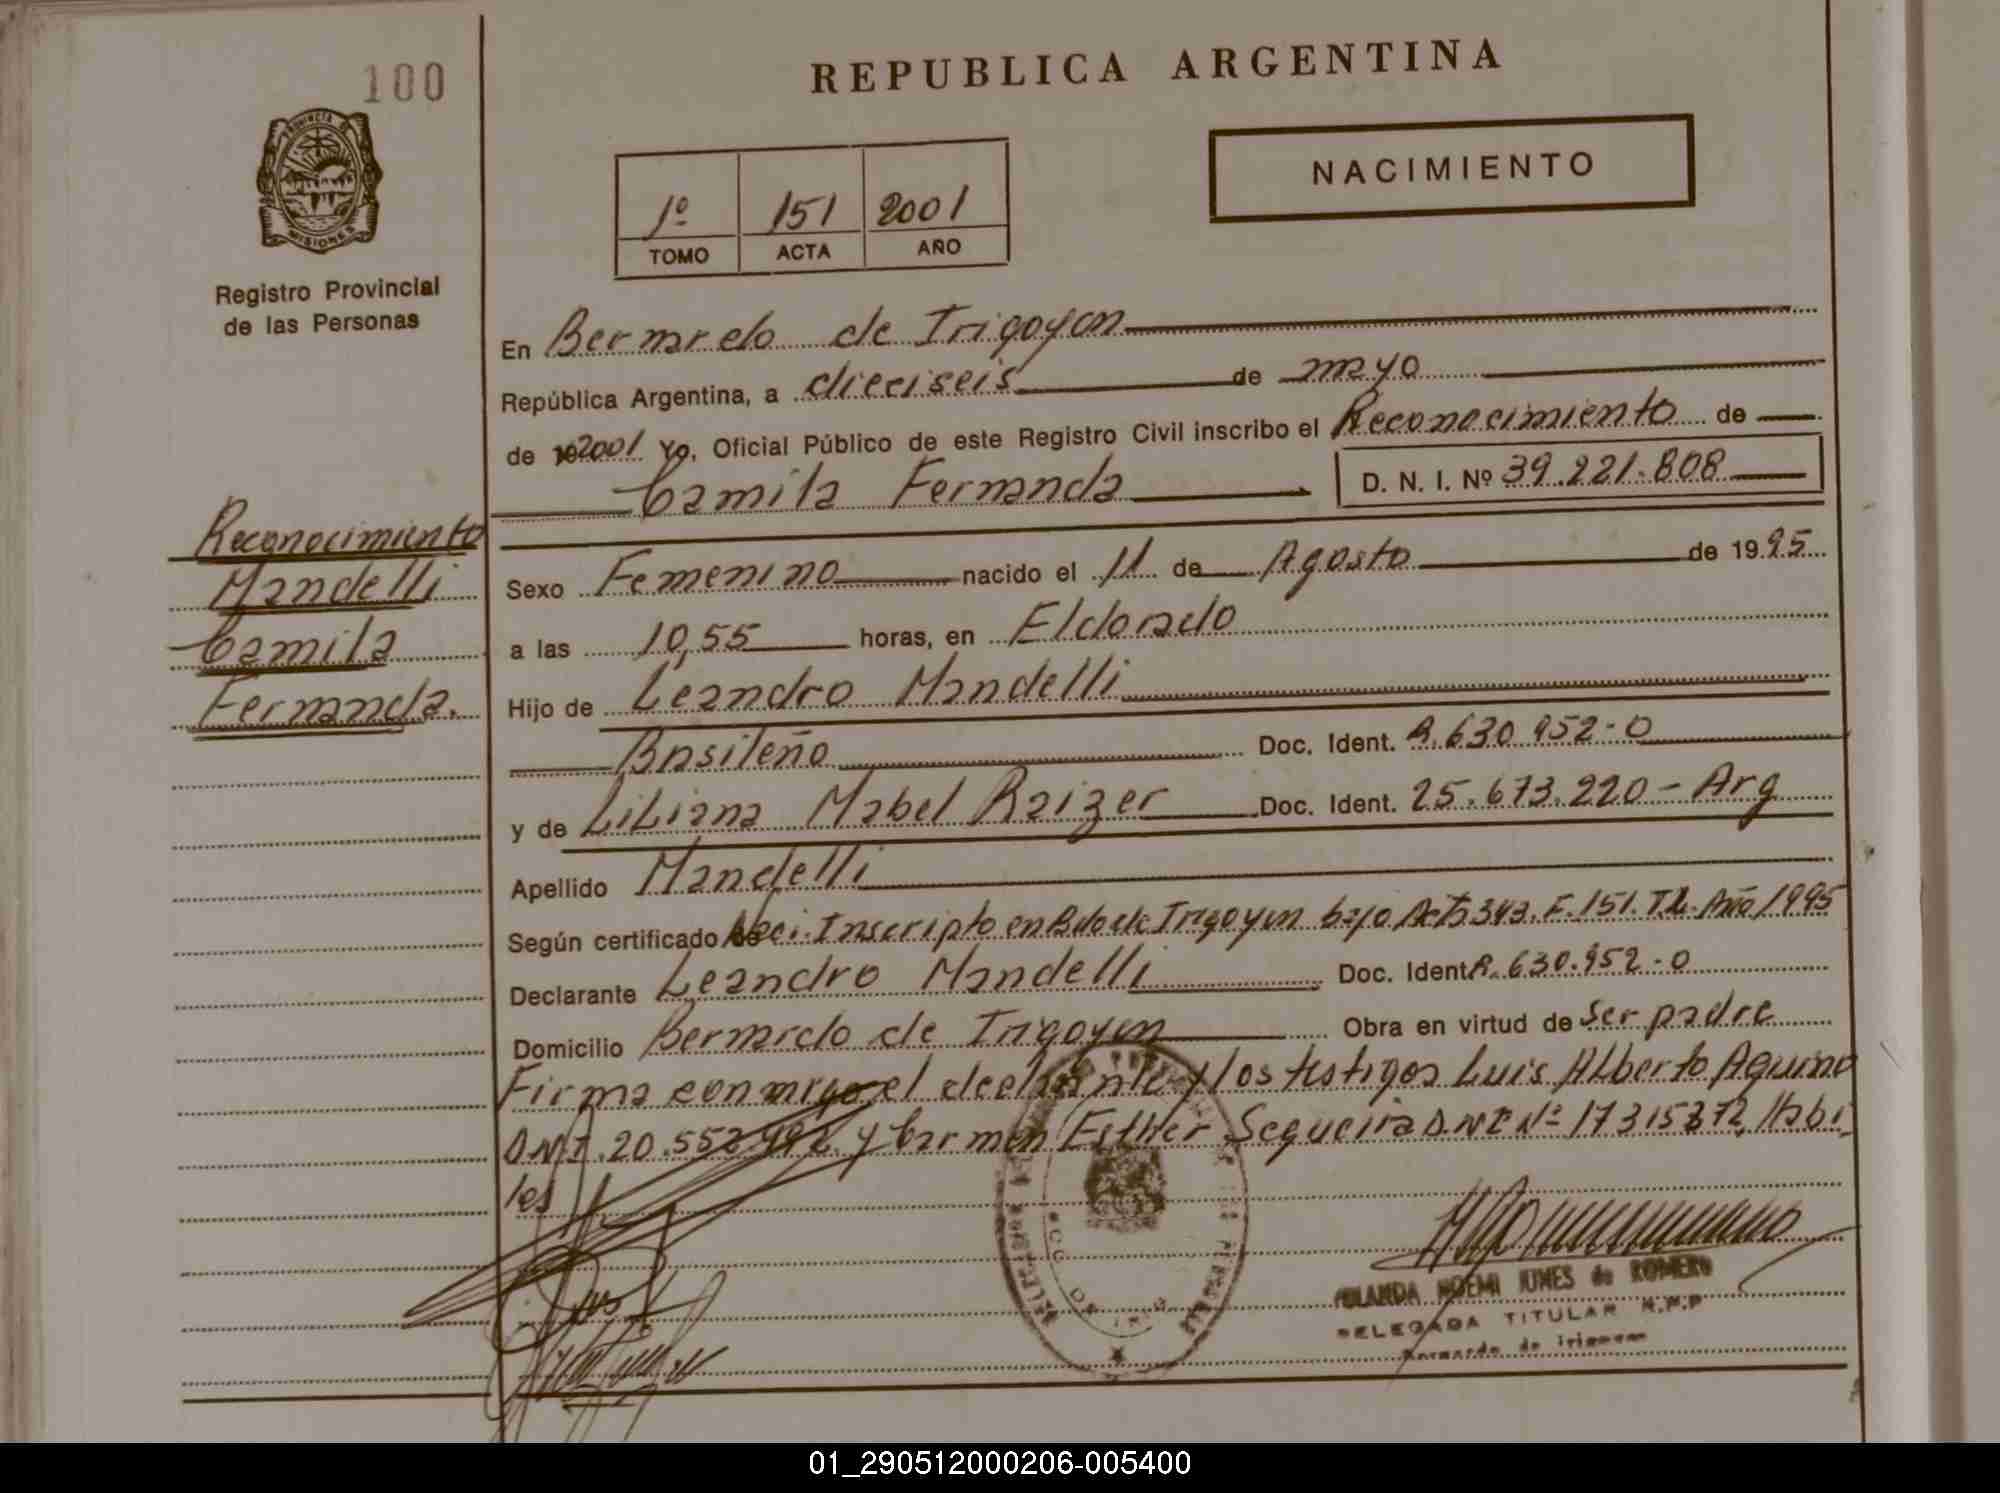 100
REPUBLICA ARGENTINA
NACIMIENTO
PROVINCIA DE
MISIONES
Registro Provincial
de las Personas
1º 151 2001
TOMO ACTA AÑO
En Bernardo de Irigoyen
República Argentina, a dieciseis de mayo
de 2001 Yo, Oficial Público de este Registro Civil inscribo el Reconocimiento de
Camila Fernanda D. N. I. Nº 39.221.808
Reconocimiento
Mandelli
Camila
Fernanda.
Sexo Femenino nacido el 11 de Agosto de 1995
a las 10,55 horas, en Eldorado
Hijo de Leandro Mandelli
Brasileño Doc. Ident. R.630.952-0
y de Liliana Mabel Raizer Doc. Ident. 25.673.220-Arg
Apellido Mandelli
Según certificado de Naci. Inscripto en Bdo de Irigoyen bajo Acta 343. F. 151. Año 1995
Declarante Leandro Mandelli Doc. Ident R. 630.952-0
Domicilio Bernardo de Irigoyen Obra en virtud de ser padre
Firma conmigo el declarante y los testigos Luis Alberto Aquino
DNI. 20.552.492 y Carmen Esther Sequeira DNI Nº 17315372, Habi
les
YOLANDA NOEMI JUNES de ROMERO
DELEGADA TITULAR R.P.P
Bernardo de Irigoyen
01_290512000206-005400